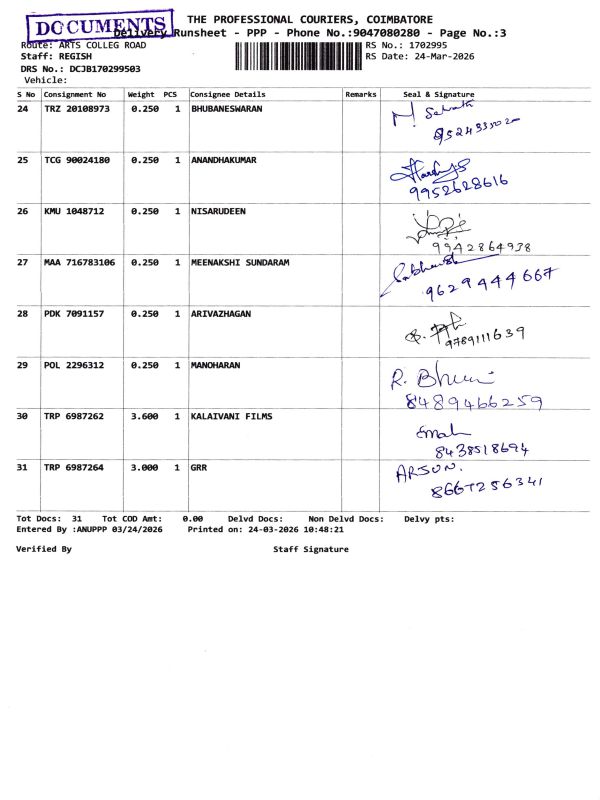 DOCUMENTS
THE PROFESSIONAL COURIERS, COIMBATORE
Delivery Runsheet - PPP - Phone No.:9047080280 - Page No.:3
Route: ARTS COLLEG ROAD
RS No.: 1702995
Staff: REGISH
RS Date: 24-Mar-2026
DRS No.: DCJB170299503
Vehicle:
S No Consignment No Weight PCS Consignee Details Remarks Seal & Signature
24 TRZ 20108973 0.250 1 BHUBANESWARAN
25 TCG 90024180 0.250 1 ANANDHAKUMAR
9952628616
26 KMU 1048712 0.250 1 NISARUDEEN
9942864938
27 MAA 716783106 0.250 1 MEENAKSHI SUNDARAM
9629444667
28 PDK 7091157 0.250 1 ARIVAZHAGAN
9789111639
29 POL 2296312 0.250 1 MANOHARAN
R.
8489466259
30 TRP 6987262 3.600 1 KALAIVANI FILMS
8438518694
31 TRP 6987264 3.000 1 GRR
ARSON.
8667256341
Tot Docs: 31 Tot COD Amt: 0.00 Delvd Docs: Non Delvd Docs: Delvy pts:
Entered By :ANUPPP 03/24/2026 Printed on: 24-03-2026 10:48:21
Verified By Staff Signature